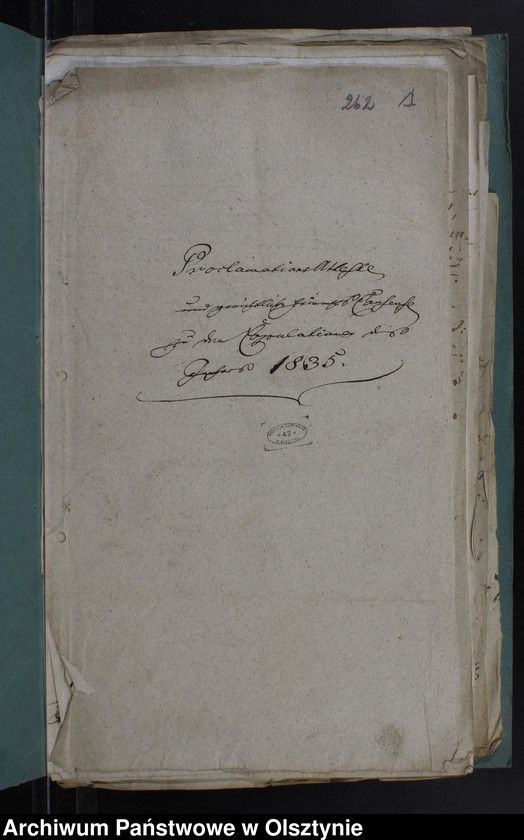 262 1
Proclamations Atteste
und gerichtliche Consense
zu den Copulationen des
Jahres 1835.
42
Archiwum Państwowe w Olsztynie